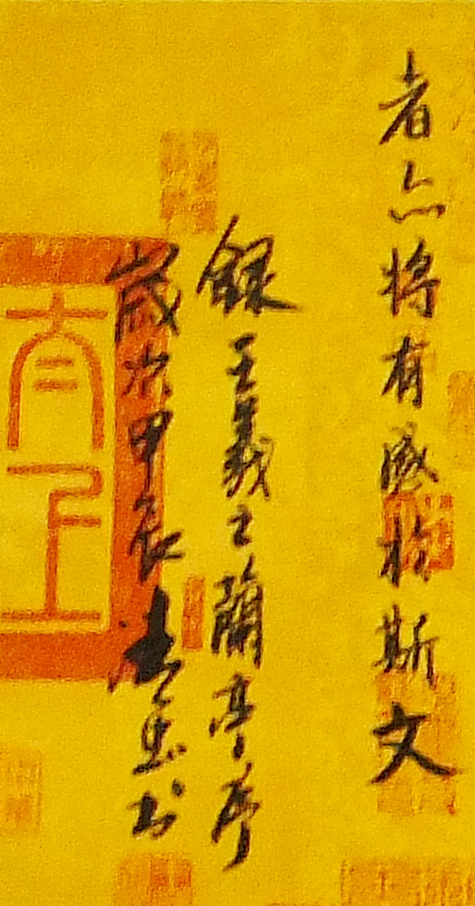 者亦将有感於斯文
録王羲之蘭亭序
歲次甲辰清书